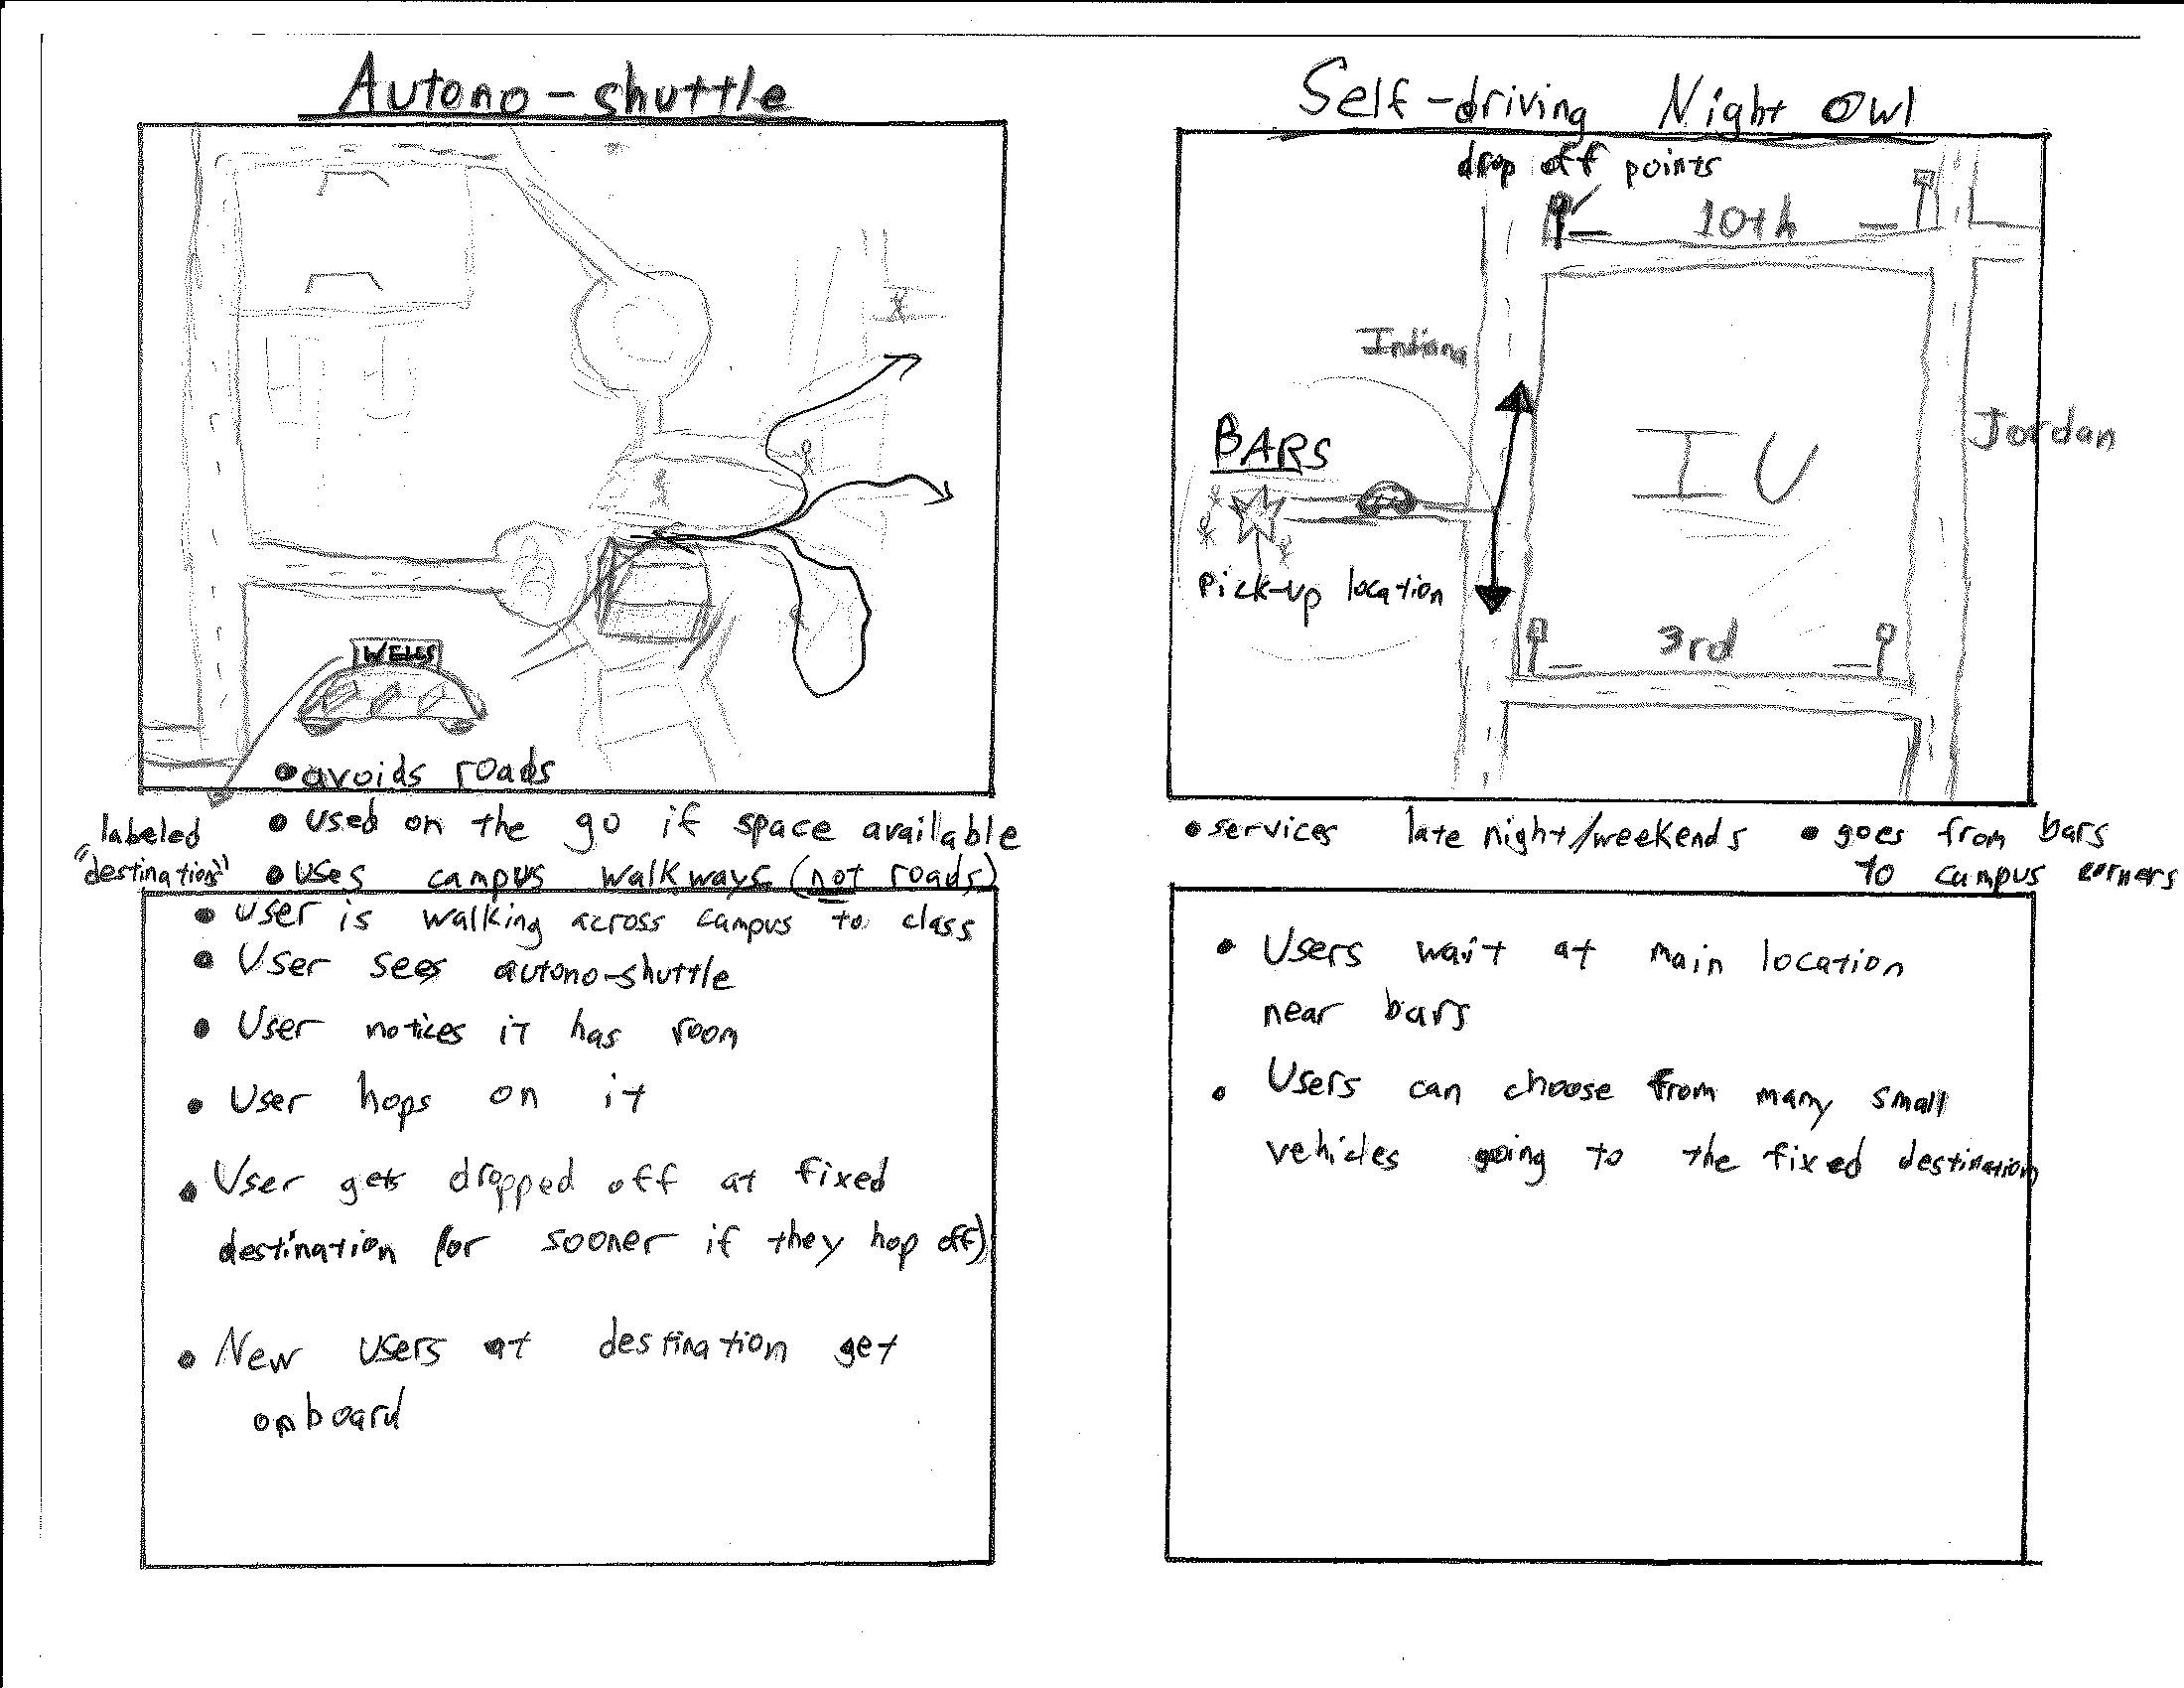 Autono-shuttle
WELLS
• avoids roads
labeled
"destination"
• used on the go if space available
• uses campus walkways (not roads)
• user is walking across campus to class
• User sees autono-shuttle
• User notices it has room
• User hops on it
• User gets dropped off at fixed
destination (or sooner if they hop off)
• New users at destination get
onboard
Self-driving Night Owl
drop off points
10th
Indiana
BARS
IU
Jordan
Pick-up location
3rd
• services late night/weekends
• goes from bars
to campus corners
• Users wait at main location
near bars
• Users can choose from many small
vehicles going to the fixed destination